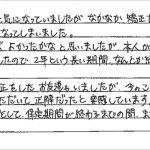 気になっていましたが なかなか 矯正
なってしまいました。
よかったかなと思いましたが 本人が
したので 2年という長い期間、なんとか
正をした お友達もいましたが、今のこ
ただいて 正解だったと 実感しています
として、保定期間が終わるまでの間、ま